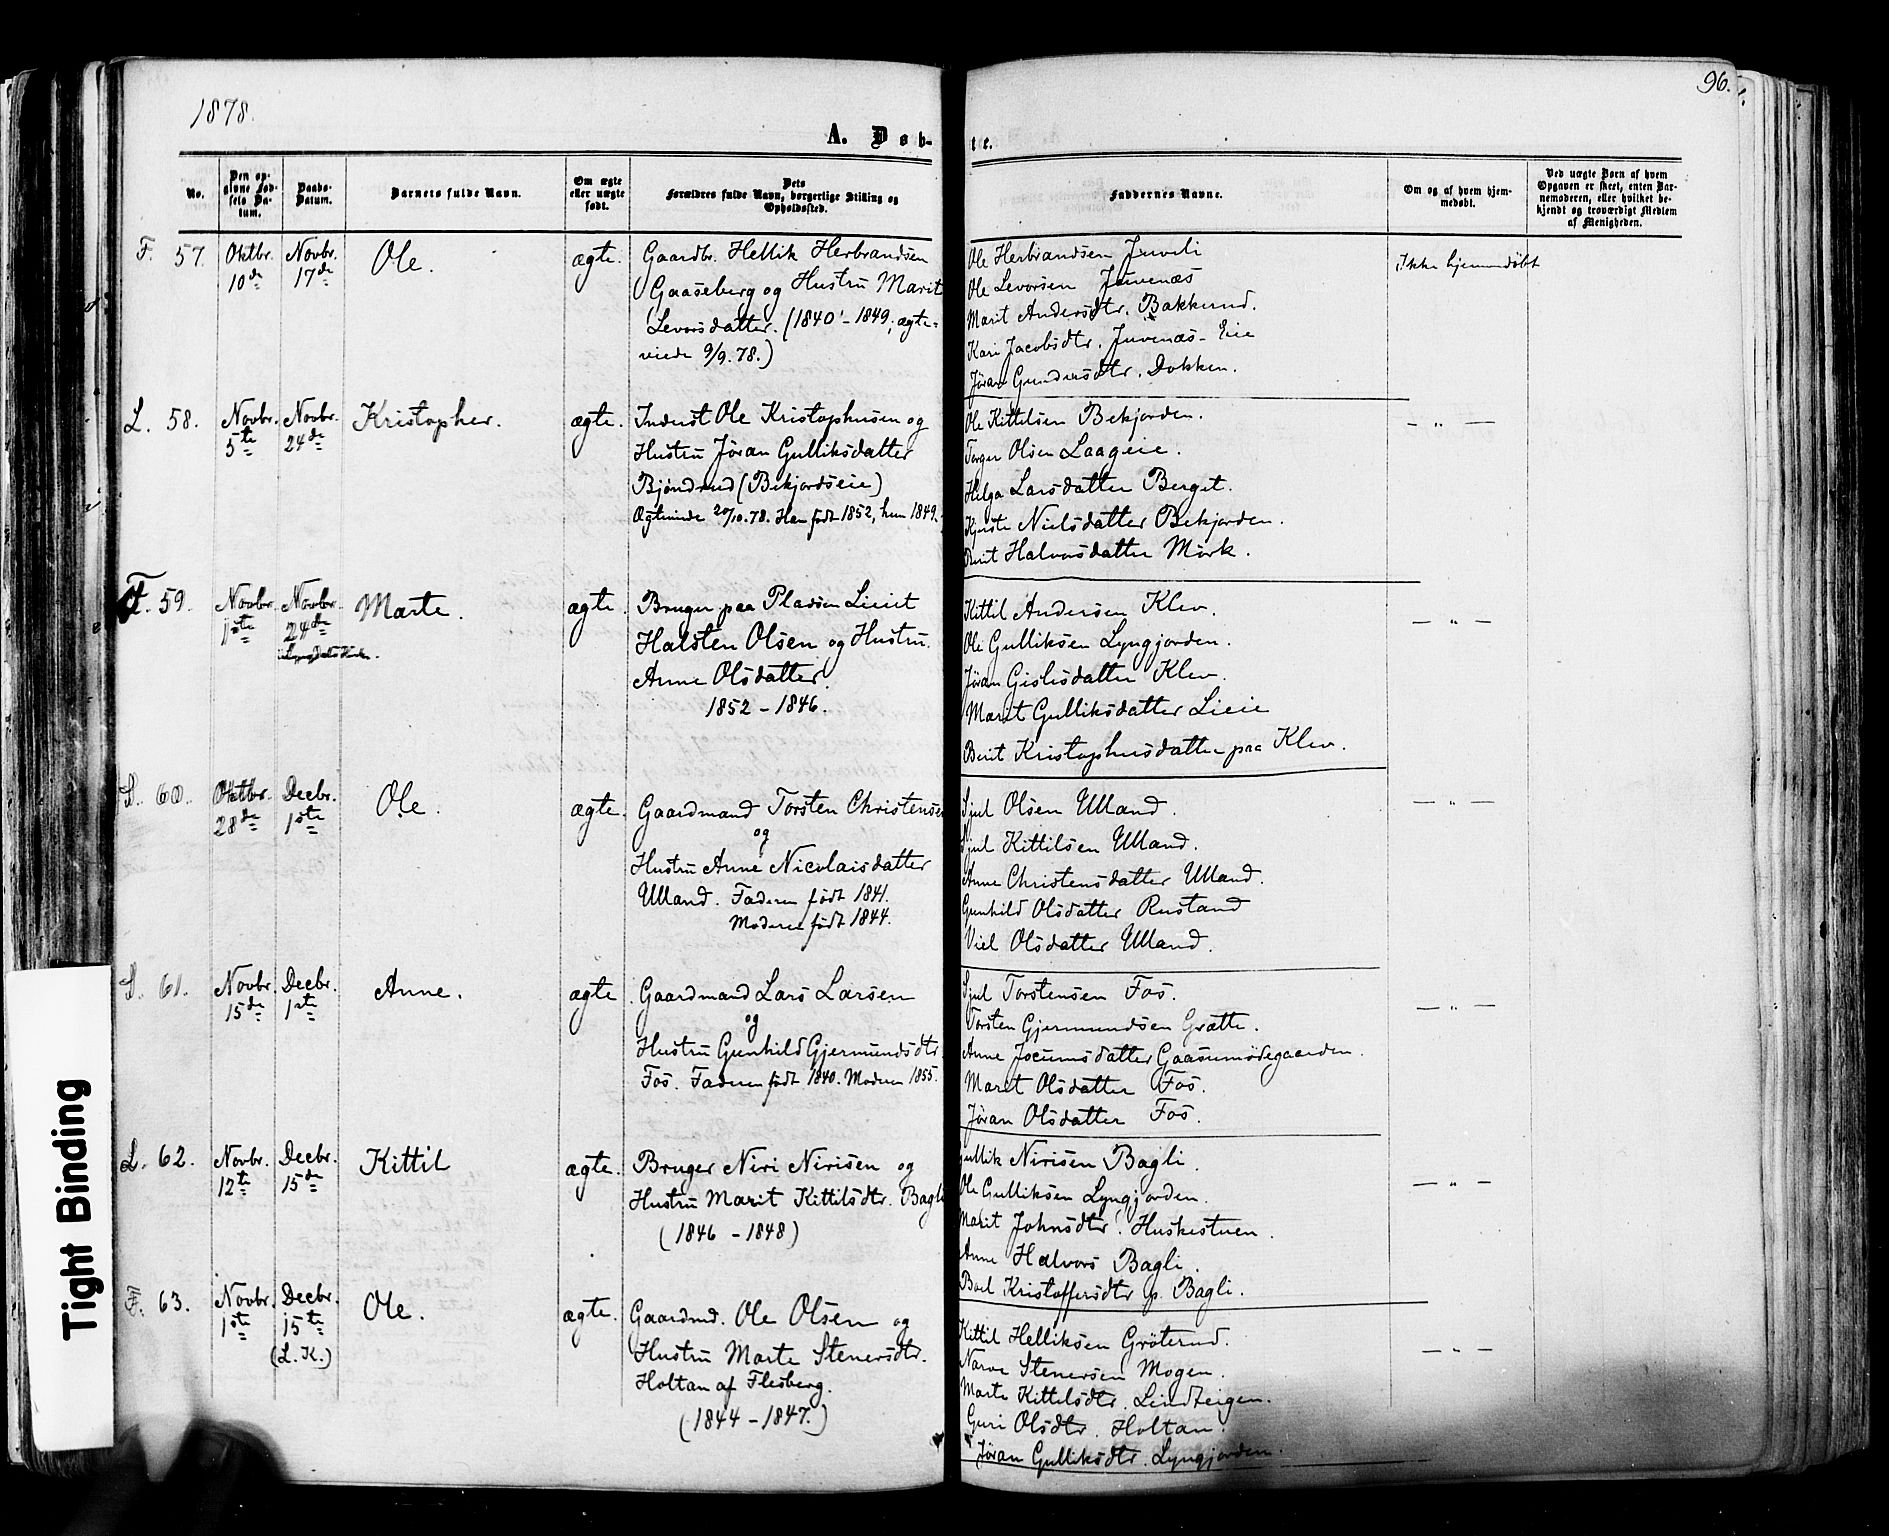 1878.
96.
A. Døb-
te.
No.
Den op-
givne Fød-
sels Da-
tum.
Daabs-
Datum.
Barnets fulde Navn.
Om ægte
eller uægte
født.
Dets
Forældres fulde Navn, borgerlige Stilling og
Opholdssted.
Faddernes Navne.
Om og af hvem hjem-
medøbt.
Ved uægte Børn af hvem
Opgaven er skeet, enten Bar-
nemoderen, eller hvilket be-
kjendt og troværdigt Medlem
af Menigheden.
F. 57.
Oktbr.
10de
Novbr.
17de
Ole.
ægte.
Gaardbr. Hellik Herbrandsen
Gaaseberg og Hustru Marit
Levorsdatter. (1840 - 1849; ægte-
viede 9/9.78.)
Ole Herbrandsen Juveli
Ole Levorsen Juvenæs
Marit Andersdtr. Bakkerud.
Kari Jacobsdtr. Juvenæs-Eie
Jøran Gundersdtr. Dokken.
Ikke hjemmedøbt
L. 58.
Novbr.
5te
Novbr.
24de
Kristopher.
ægte.
Inderst Ole Kristophersen og
Hustru Jøran Gulliksdatter
Bjøndrud (Bekjordseie)
Ægteviede 20/10.78. Han født 1852, hun 1849.
Ole Kittilsen Bekjorden.
Torger Olsen Laageie.
Helga Larsdatter Berget.
Kjersti Nielsdatter Bekjorden.
Berit Halvorsdatter Mørk.
— „ —
F. 59.
Novbr.
1ste
Novbr.
24de
Marte.
ægte.
Bruger paa Pladsen Lieiet
Halsten Olsen og Hustru
Anne Olsdatter.
1852 - 1846.
Kittil Andersen Klev.
Ole Gulliksen Lyngjorden.
Jøran Gislesdatter Klev.
Marit Gulliksdatter Lieie
Berit Kristophersdatter paa Klev.
— „ —
S. 60.
Oktbr.
28de
Decbr.
1ste
Ole.
ægte.
Gaardmand Torsten Christensen
og
Hustru Anne Nicolaisdatter
Ulland. Faderen født 1841.
Moderen født 1844.
Sjul Olsen Ulland.
Sjul Kittilsen Ulland.
Anne Christensdatter Ulland.
Gunhild Olsdatter Rustand
Viel Olsdatter Ulland.
— „ —
S. 61.
Novbr.
15de
Decbr.
1ste
Anne.
ægte.
Gaardmand Lars Larsen
og
Hustru Gunhild Gjermundsdtr.
Fos. Faderen født 1840. Moderen 1855.
Sjul Torstensen Fos.
Torsten Gjermundsen Grætte.
Anne Jocumsdatter Gaasumødegaarden.
Marit Olsdatter Fos.
Jøran Olsdatter Fos.
— „ —
L. 62.
Novbr.
12te
Decbr.
15de
Kittil
ægte.
Bruger Niri Nirisen og
Hustru Marit Kittilsdtr. Bagli
(1846 - 1848)
Gullik Nirisen Bagli.
Ole Gulliksen Lyngjorden.
Marit Johnsdtr. Huskestuen.
Anne Halvors Bagli.
Boel Kristoffersdtr p. Bagli.
— „ —
F. 63.
Novbr.
1ste
Decbr.
15te
(L. K.)
Ole.
ægte.
Gaardmd. Ole Olsen og
Hustru Marte Stenersdtr.
Holtan af Flesberg.
(1844 - 1847.)
Kittil Helliksen Grøterud.
Narve Stenersen Mogen.
Marte Kittilsdtr. Lindteigen.
Guri Olsdtr. Holtan.
Jøran Gulliksdtr. Lyngjorden.
— „ —
Tight Binding